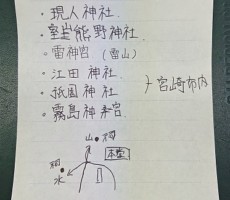 ・現人神社
・熊野神社
・雷神宮 (雷山)
・江田神社
・祇園神社
・霧島神宮
宮崎市内
山
本堂
水